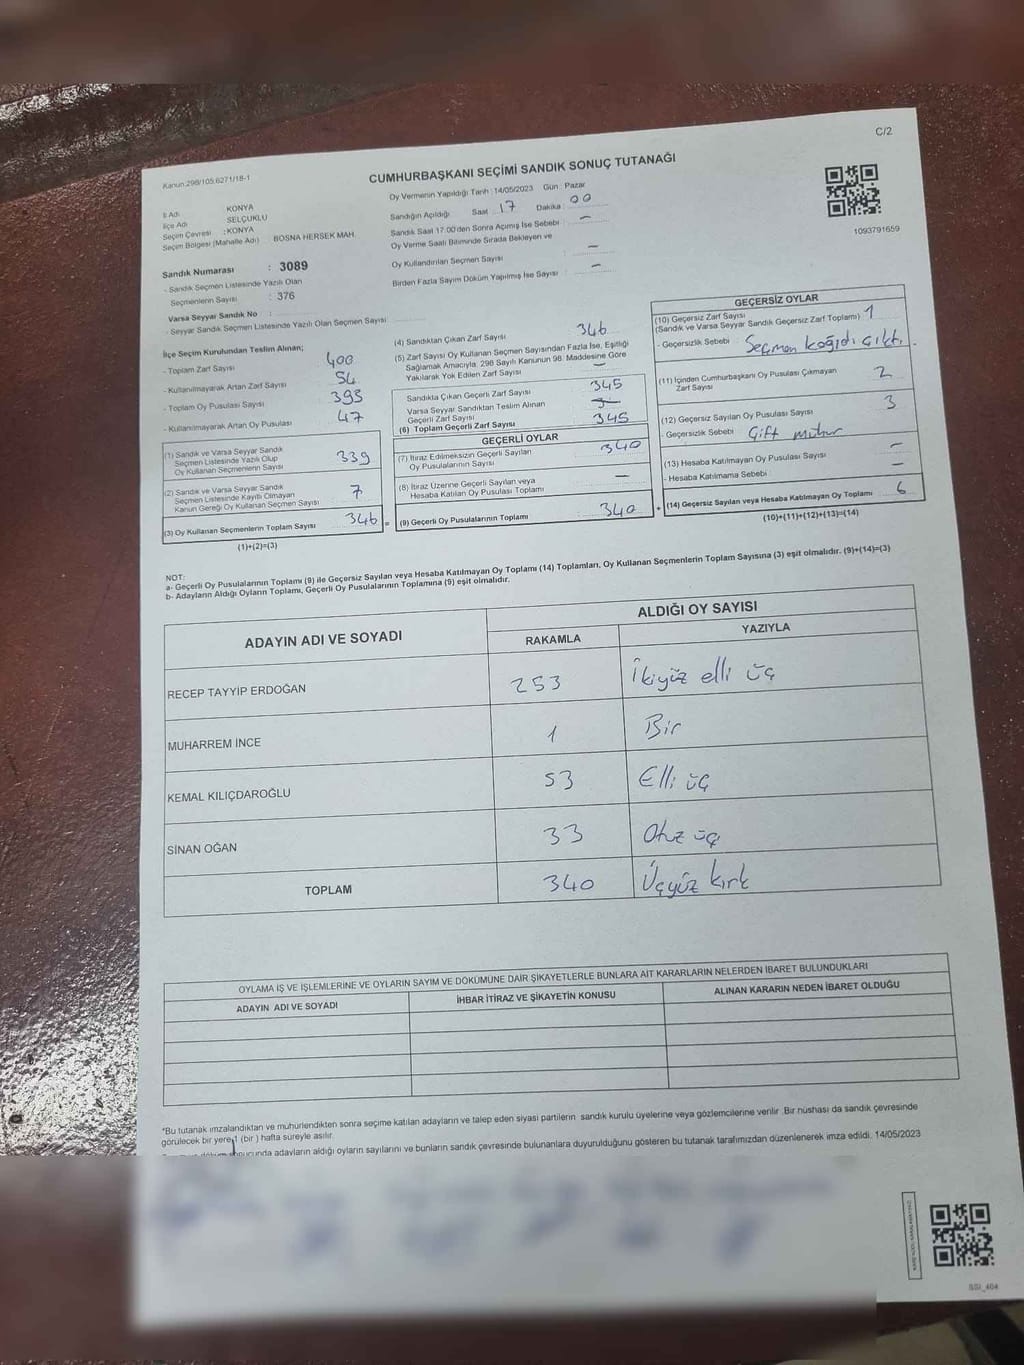 C/2
Kanun:298/105;6271/18-1
CUMHURBAŞKANI SEÇİMİ SANDIK SONUÇ TUTANAĞI
1093791659
İl Adı KONYA
İlçe Adı SELÇUKLU
Seçim Çevresi : KONYA
Seçim Bölgesi (Mahalle Adı) BOSNA HERSEK MAH.
Sandık Numarası : 3089
- Sandık Seçmen Listesinde Yazılı Olan
Seçmenlerin Sayısı : 376
Varsa Seyyar Sandık No :
- Seyyar Sandık Seçmen Listesinde Yazılı Olan Seçmen Sayısı :
Oy Vermenin Yapıldığı Tarih : 14/05/2023 Gün : Pazar
Sandığın Açıldığı Saat 17 Dakika : 00
Sandık Saat 17.00'den Sonra Açımış İse Sebebi : –
Oy Verme Saati Bitiminde Sırada Bekleyen ve
Oy Kullandırılan Seçmen Sayısı : –
Birden Fazla Sayım Döküm Yapılmış İse Sayısı : –
İlçe Seçim Kurulundan Teslim Alınan;
- Toplam Zarf Sayısı 400
- Kullanılmayarak Artan Zarf Sayısı 54
- Toplam Oy Pusulası Sayısı 393
- Kullanılmayarak Artan Oy Pusulası 47
(1) Sandık ve Varsa Seyyar Sandık
Seçmen Listesinde Yazılı Olup
Oy Kullanan Seçmenlerin Sayısı 339
(2) Sandık ve Varsa Seyyar Sandık
Seçmen Listesinde Kayıtlı Olmayan
Kanun Gereği Oy Kullanan Seçmen Sayısı 7
(3) Oy Kullanan Seçmenlerin Toplam Sayısı 346
(1)+(2)=(3)
=
(4) Sandıktan Çıkan Zarf Sayısı 346
(5) Zarf Sayısı Oy Kullanan Seçmen Sayısından Fazla İse, Eşitliği
Sağlamak Amacıyla, 298 Sayılı Kanunun 98. Maddesine Göre
Yakılarak Yok Edilen Zarf Sayısı –
Sandıkla Çıkan Geçerli Zarf Sayısı 345
Varsa Seyyar Sandıktan Teslim Alınan
Geçerli Zarf Sayısı
(6) Toplam Geçerli Zarf Sayısı 345
GEÇERLİ OYLAR
(7) İtiraz Edilmeksizin Geçerli Sayılan
Oy Pusulalarının Sayısı 340
(8) İtiraz Üzerine Geçerli Sayılan veya
Hesaba Katılan Oy Pusulası Toplamı –
(9) Geçerli Oy Pusulalarının Toplamı 340
+
GEÇERSİZ OYLAR
(10) Geçersiz Zarf Sayısı
(Sandık ve Varsa Seyyar Sandık Geçersiz Zarf Toplamı) 1
- Geçersizlik Sebebi : Seçmen kağıdı çıktı.
(11) İçinden Cumhurbaşkanı Oy Pusulası Çıkmayan
Zarf Sayısı 2
(12) Geçersiz Sayılan Oy Pusulası Sayısı 3
- Geçersizlik Sebebi Çift mühür
(13) Hesaba Katılmayan Oy Pusulası Sayısı –
- Hesaba Katılmama Sebebi : –
(14) Geçersiz Sayılan veya Hesaba Katılmayan Oy Toplamı 6
(10)+(11)+(12)+(13)=(14)
NOT:
a- Geçerli Oy Pusulalarının Toplamı (9) ile Geçersiz Sayılan veya Hesaba Katılmayan Oy Toplamı (14) Toplamları, Oy Kullanan Seçmenlerin Toplam Sayısına (3) eşit olmalıdır. (9)+(14)=(3)
b- Adayların Aldığı Oyların Toplamı, Geçerli Oy Pusulalarının Toplamına (9) eşit olmalıdır.
ADAYIN ADI VE SOYADI
ALDIĞI OY SAYISI
RAKAMLA YAZIYLA
RECEP TAYYİP ERDOĞAN 253 İkiyüz elli üç
MUHARREM İNCE 1 Bir
KEMAL KILIÇDAROĞLU 53 Elli üç
SİNAN OĞAN 33 Otuz üç
TOPLAM 340 Üçyüz kırk
OYLAMA İŞ VE İŞLEMLERİNE VE OYLARIN SAYIM VE DÖKÜMÜNE DAİR ŞİKAYETLERLE BUNLARA AİT KARARLARIN NELERDEN İBARET BULUNDUKLARI
ADAYIN ADI VE SOYADI İHBAR İTİRAZ VE ŞİKAYETİN KONUSU ALINAN KARARIN NEDEN İBARET OLDUĞU
*Bu tutanak imzalandıktan ve mühürlendikten sonra seçime katılan adayların ve talep eden siyasi partilerin sandık kurulu üyelerine veya gözlemcilerine verilir. Bir nüshası da sandık çevresinde
görülecek bir yere 1 (bir) hafta süreyle asılır.
sonucunda adayların aldığı oyların sayılarını ve bunların sandık çevresinde bulunanlara duyurulduğunu gösteren bu tutanak tarafımızdan düzenlenerek imza edildi. 14/05/2023